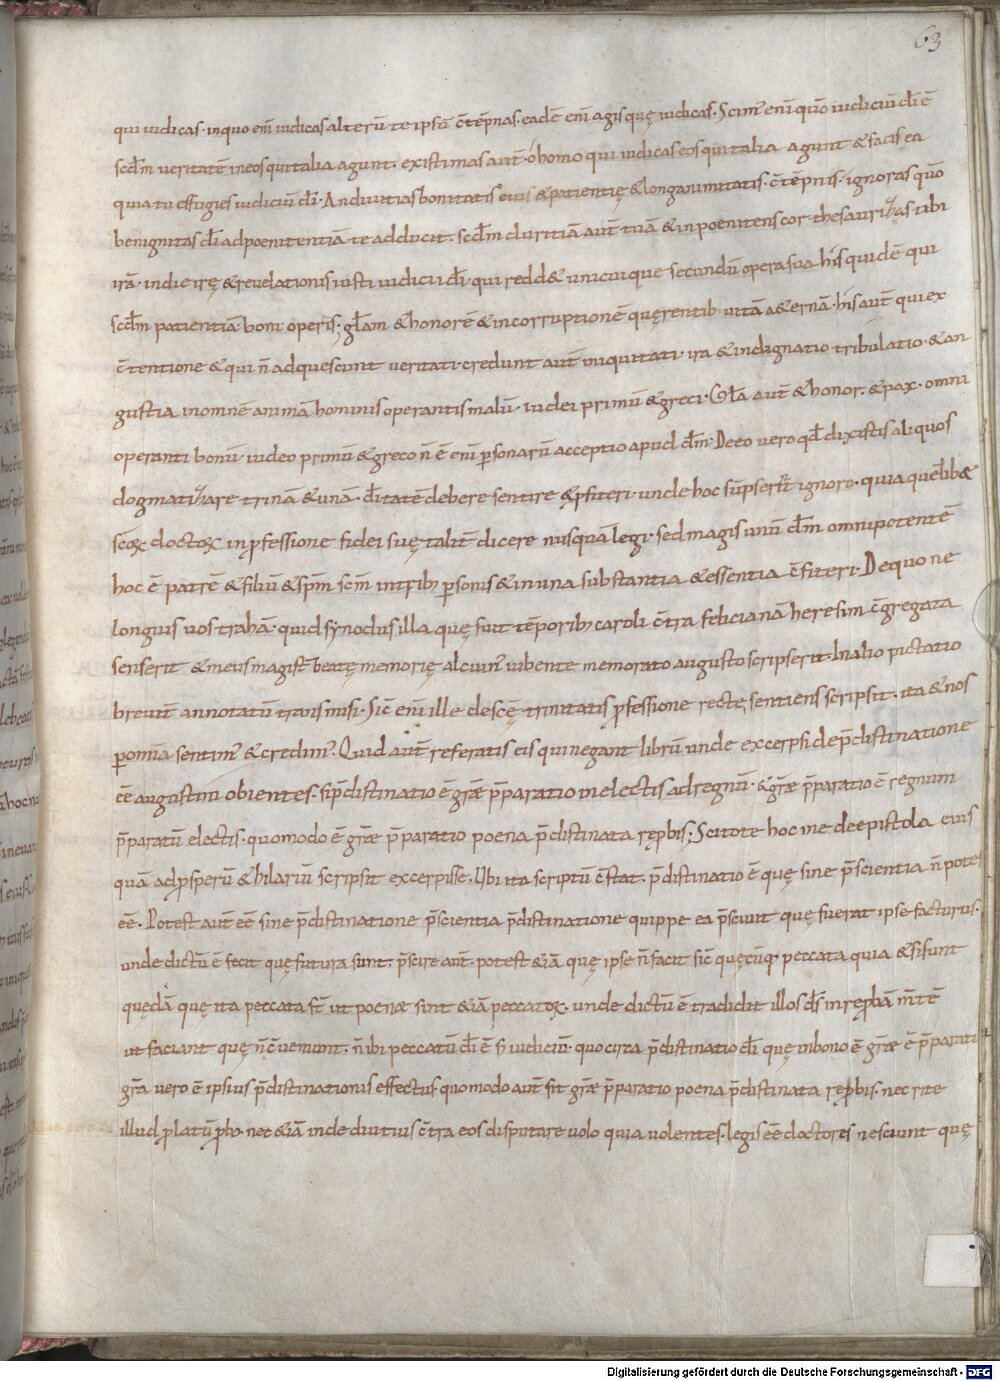 63
qui iudicas· inquo eni᷄ iudicas alterū te ipsū c̄tēpnas· eadē eni᷄ agis quę iudicas· Scim' eni᷄ quō iudiciū dī ē
scdm̄ veritatē ineos quitalia agunt· existimas aut̄· ó homo qui iudicas eos quitalia agunt & facis ea
quia tu effugies iudiciū dī· An diuitias bonitatis eius &patientię &longanimitatis· c̄tēpnis· ignoras quō
benignitas dī adpoenitentiā te adducit· scdm̄ duritiā aut̄ tuā & inpoenitens cor· thesaurizas tibi
irā· indie irę &reuelationis iusti iudicii dī· qui redd& unicuique secundū opera sua his quidē qui
scdm̄ patientiā boni operis; gl̄am &honorē &incorruptionē quęrentib; uitā a&ernā· his aut̄ qui ex
c̄tentione & qui n̄ adquescunt ueritati· credunt aut̄ iniquitati· ira &indignatio tribulatio· &an
gustia inomnē animā hominis operantis malū· iudei primū &greci· Gl̄a aut̄ &honor· &pax· omni
operanti bonū· iudeo primū &greco n̄ ē eni᷄ ꝑsonarū acceptio apud dm̄· Deeo uero qd̄ dixistis al· quos
dogmatizare trinā &unā· d̄itatē debere sentire &ꝓfiteri· unde hoc sūpser̄t ignoro· quia quelib&
scōꝝ doctoꝝ inꝓfessione fidei suę talit̄ dicere nusquā legi· sed magis unū dm̄ omnipotentē
hoc ē patrē &filiū &spm̄ scm̄ intrib; ꝑsonis &inuna substantia &essentia c̄fiteri· Dequo ne
longius uos trahā· quid synodus illa quę fuit tēporib; caroli c̄tra felicianā heresim c̄gregata
senserit &meus magist̄ beatę memorię alcuin' iubente memorato augusto scripserit· Inalio pictatio
breuit̄ annotatū transmisi· Sic̄ eni᷄ ille descę trinitatis ꝓfessione recte sentiens scripsit· ita &nos
ꝑ omnia sentim' &credim'· Quid aut̄ referatis eis qui negant librū unde excerpsi dep̄distinatione
eē augustini obientes· sip̄distinatio ē gr̄ae p̄paratio inelectis adregnū· &gr̄ae p̄paratio ē regnum
p̄paratū electis· quomodo ē gr̄ae p̄paratio poena p̄distinata rep̱bis; Scitote hoc me deepistola eius
quā adꝓsperū &hilariū scripsit excerpisse· Ubi ita scriptū c̄stat· p̄distinatio ē quę sine p̄scientia n̄ potes
eē· Potest aut̄ eē sine p̄distinatione p̄scientia p̄distinatione quippe ea p̄sciuit quę fuerat ipse facturus·
unde dictū ē fecit quę futura sunt· p̄scire aut̄ potest &iā quę ipse n̄ facit sic̄ quęcūq; peccata quia &sisunt
quędā quę ita peccata st̄ ut poenae sint &iā peccatoꝝ· unde dictū ē tradidit illos ds̄ inreꝓbā m̄tē
ut faciant quę n̄ c̄ueniunt· n̄ ibi peccatū dī ē s; iudiciū· quocirca p̄distinatio dī quę inbono ē gr̄ae ē p̄parati
gr̄a uero ē ipsius p̄distinationis effectus· quomodo aut̄ sit gr̄ae p̄paratio poena p̄distinata reꝓbis· nec rite
illud ꝓlatū ꝓbo· nec &iā inde diutius c̄tra eos disputare uolo quia uolentes· legis eē doctores nesciunt quę
Digitalisierung gefördert durch die Deutsche Forschungsgemeinschaft · DFG